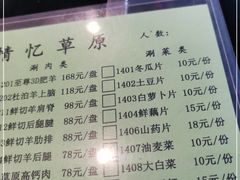 情忆草原
人数：
涮肉类
涮菜类
201至尊3D肥羊 168元/盘
1401冬瓜片 10元/份
202杜泊羊上脑 118元/盘
1402土豆片 10元/份
鲜切羊肩脊 98元/盘
1403白萝卜片 10元/份
鲜切后腿腱 88元/盘
1404鲜藕片 15元/份
鲜切羊肋排 88元/盘
1406山药片 18元/份
鲜切后腿 78元/盘
1407油麦菜 15元/份
草原高钙肉 88元/盘
1408大白菜 10元/份